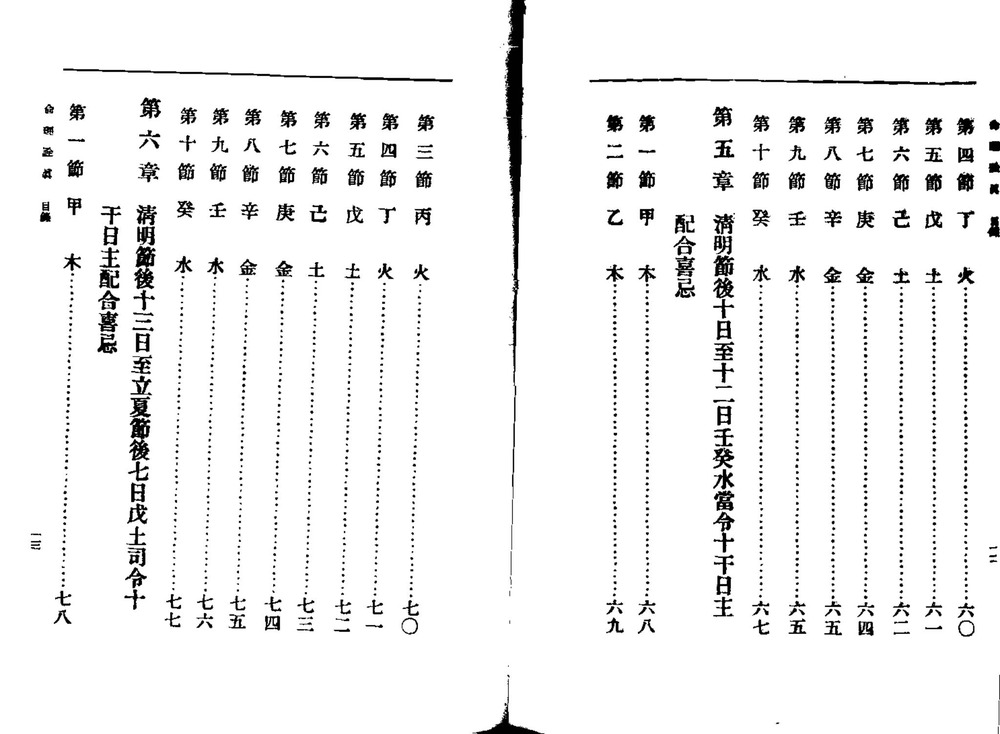 命理 目錄
第四節 丁 火……六〇
第五節 戊 土……六一
第六節 己 土……六二
第七節 庚 金……六四
第八節 辛 金……六五
第九節 壬 水……六五
第十節 癸 水……六七
第五章 淸明節後十日至十二日壬癸水當令十干日主
配合喜忌
第一節 甲 木……六八
第二節 乙 木……六九
一二
第三節 丙 火……七〇
第四節 丁 火……七一
第五節 戊 土……七二
第六節 己 土……七三
第七節 庚 金……七四
第八節 辛 金……七五
第九節 壬 水……七六
第十節 癸 水……七七
第六章 淸明節後十三日至立夏節後七日戊土司令十
干日主配合喜忌
第一節 甲 木……七八
命理 目錄
一三